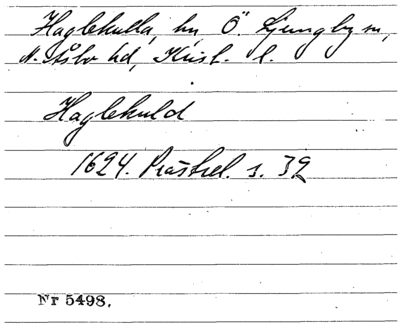 Haglekulla, hn Ö. Ljungby sn,
N. Åsbo hd, Krist. l.
Haglekuld
1624. Prästrel. s. 32
Nr 5498.